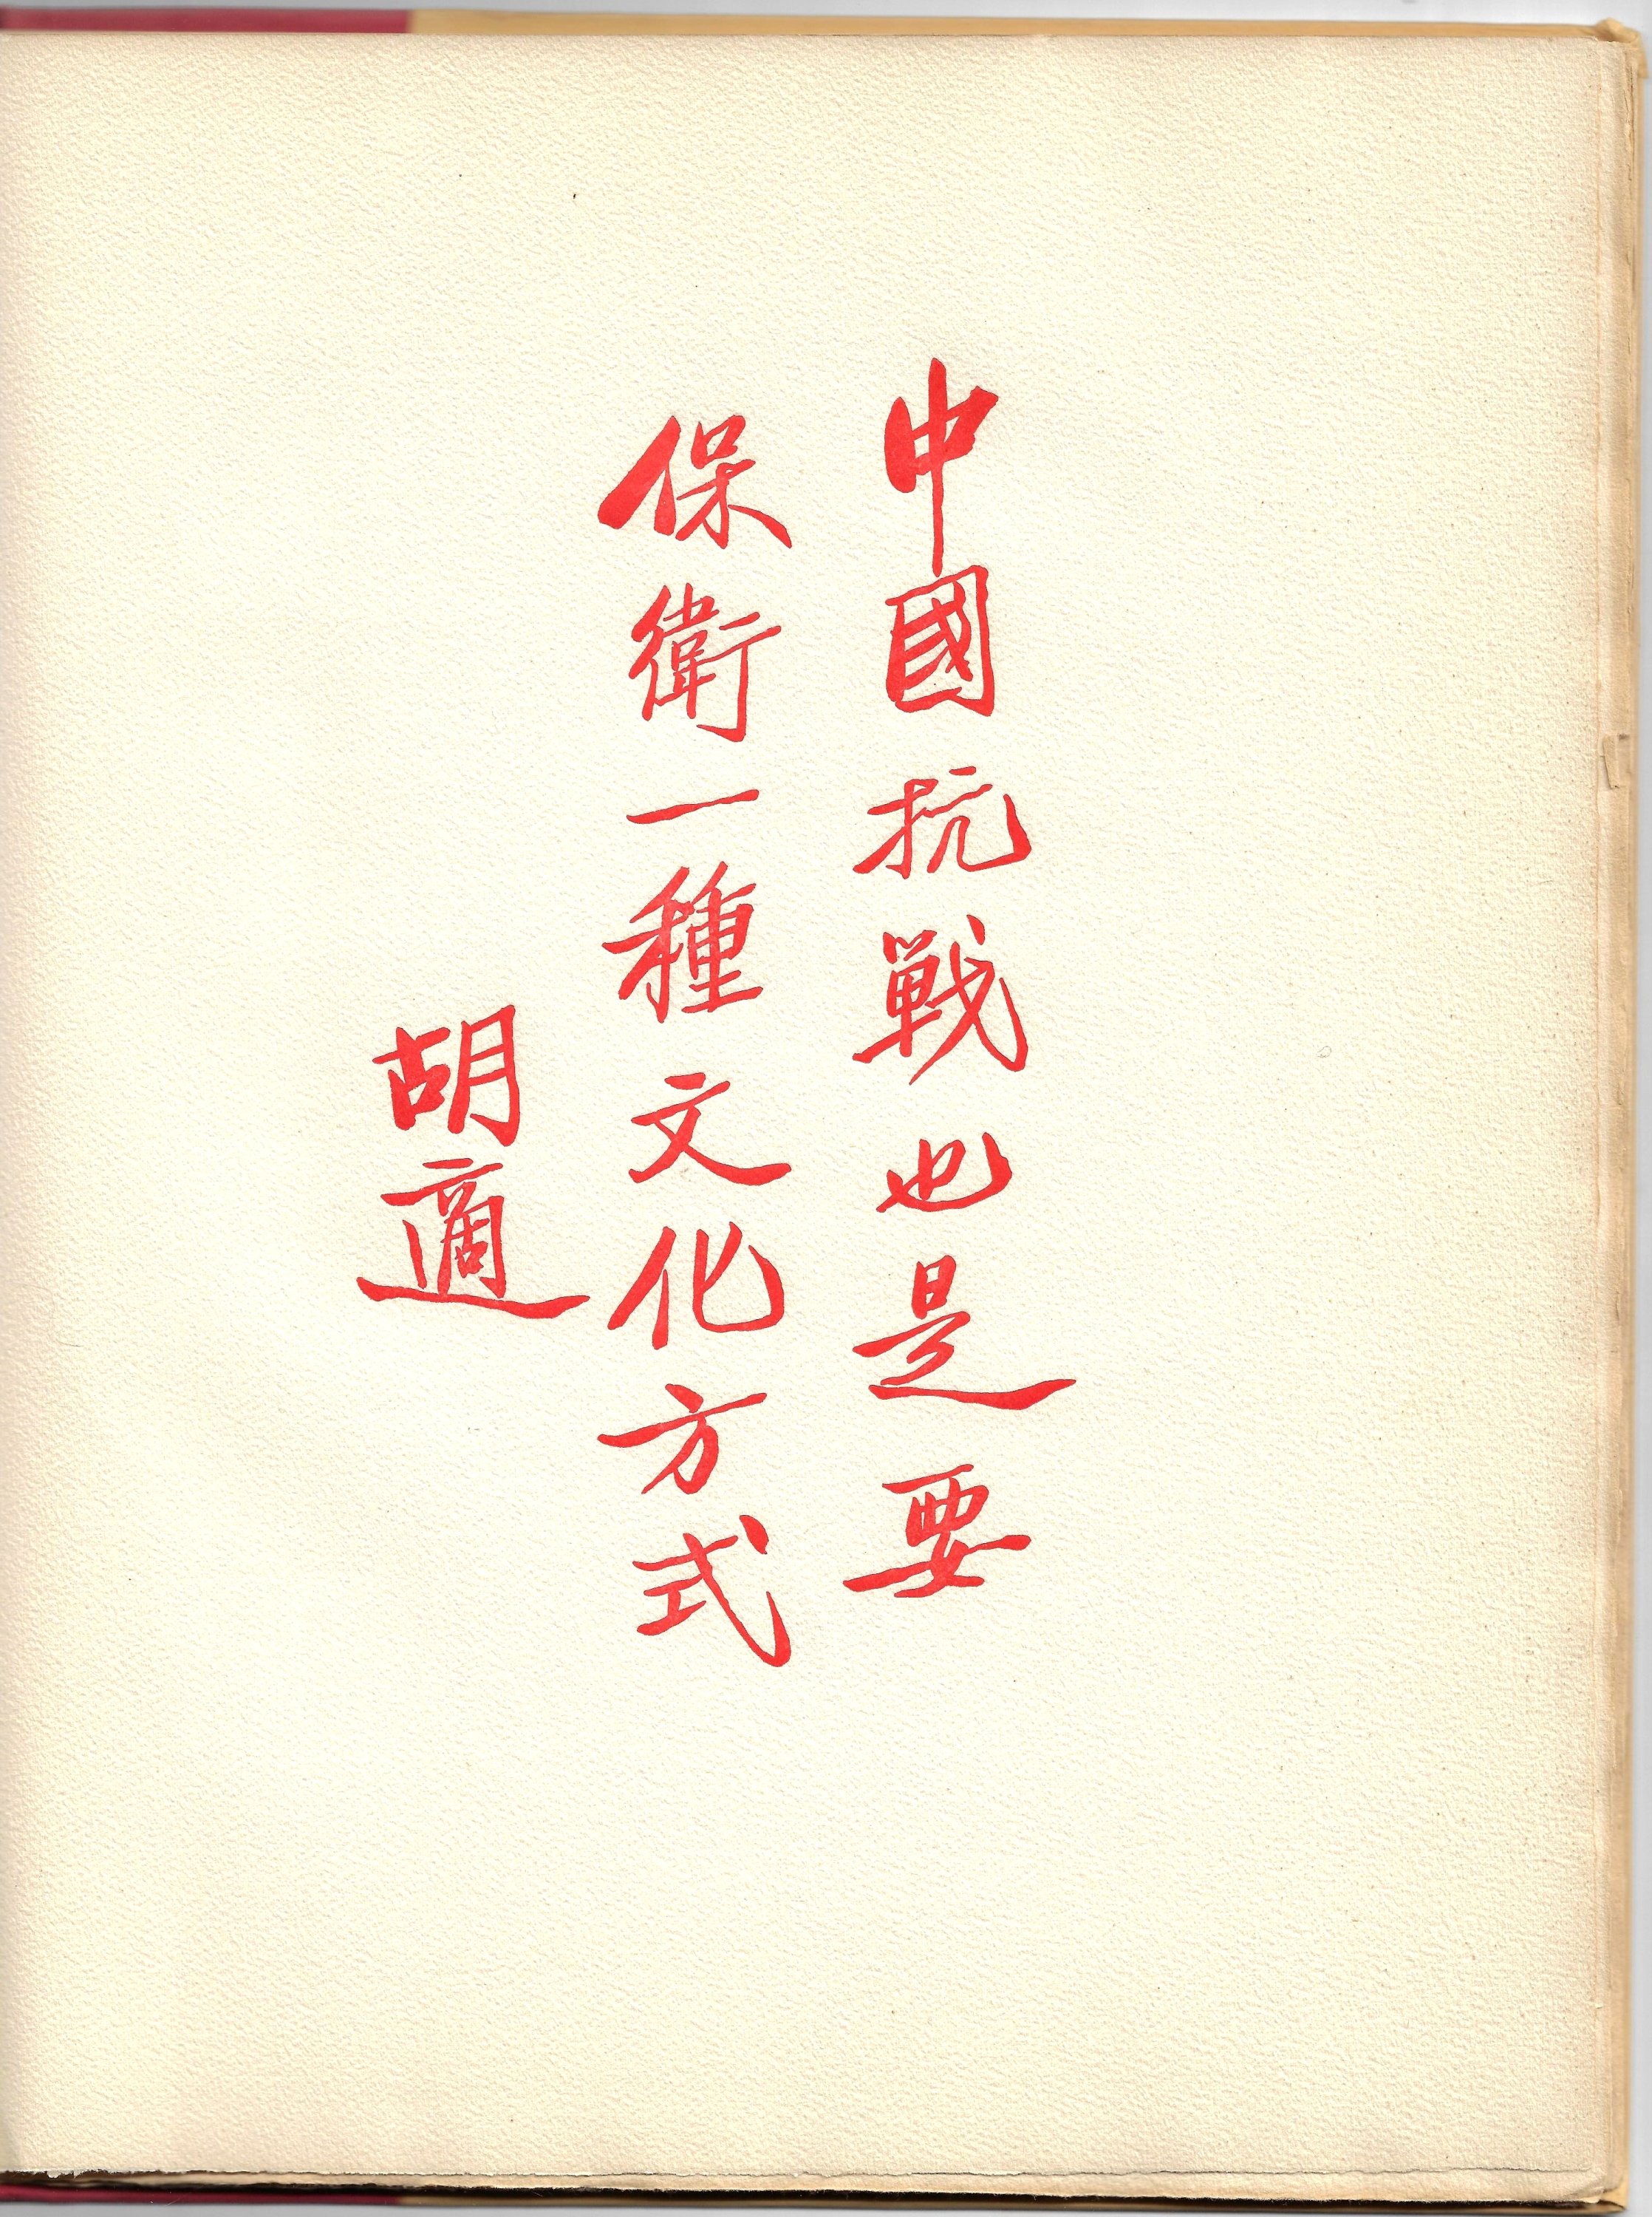 中國抗戰也是要
保衛一種文化方式
胡適